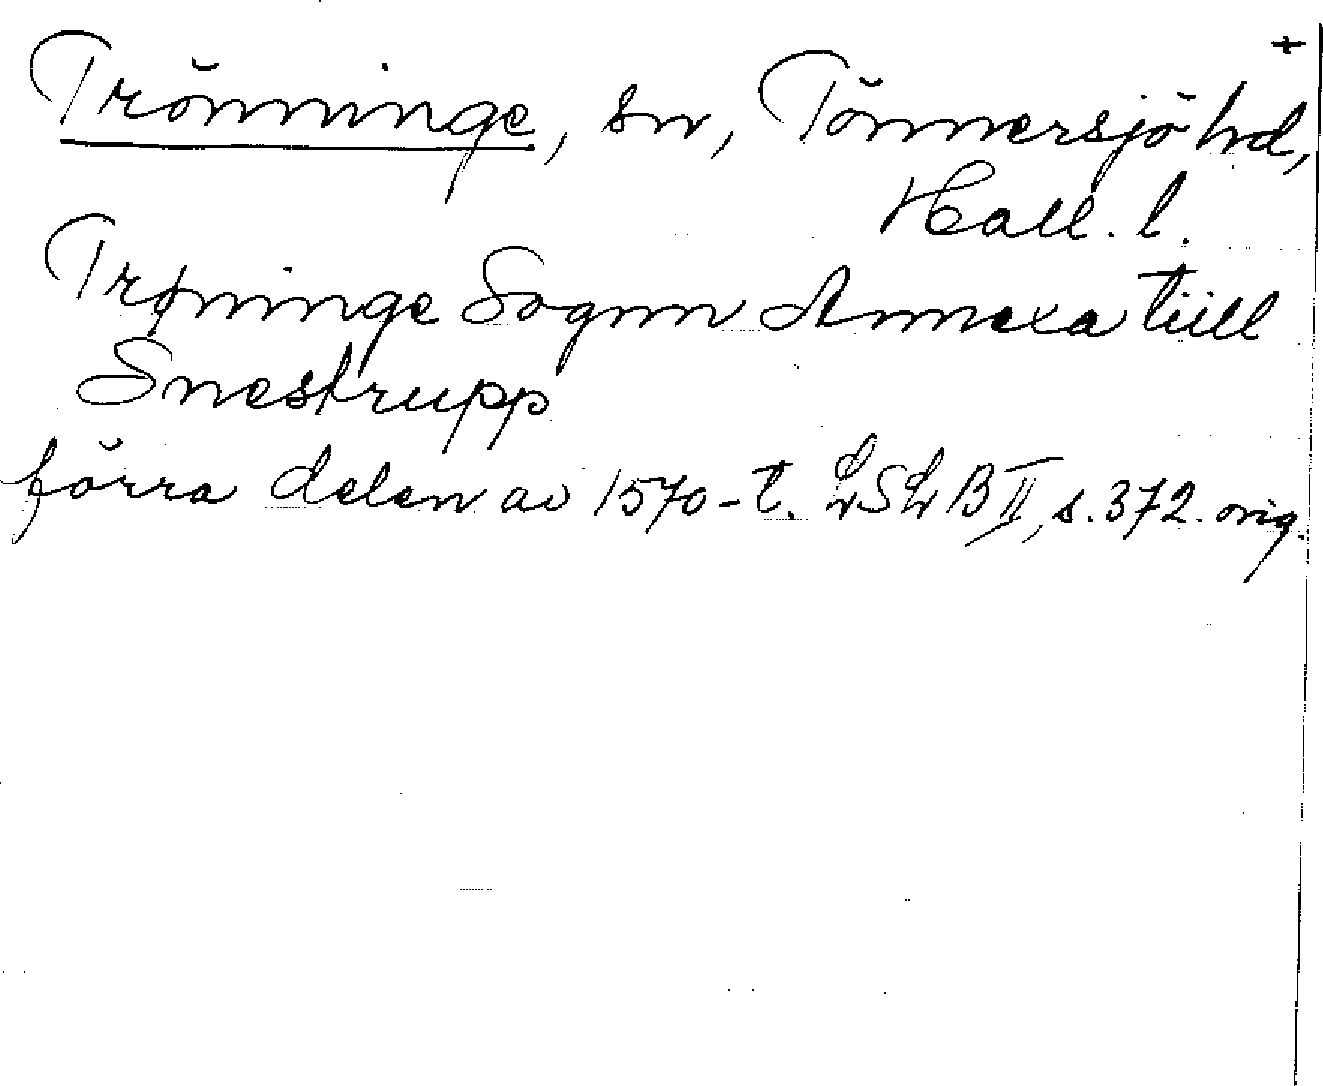 Trönninge, sn, Tönnersjö hd, +
Hall. l.
Trøninge Sognn Annexa tiill
Snestrupp
förra delen av 1570-t. LSLB II, s. 372. orig.